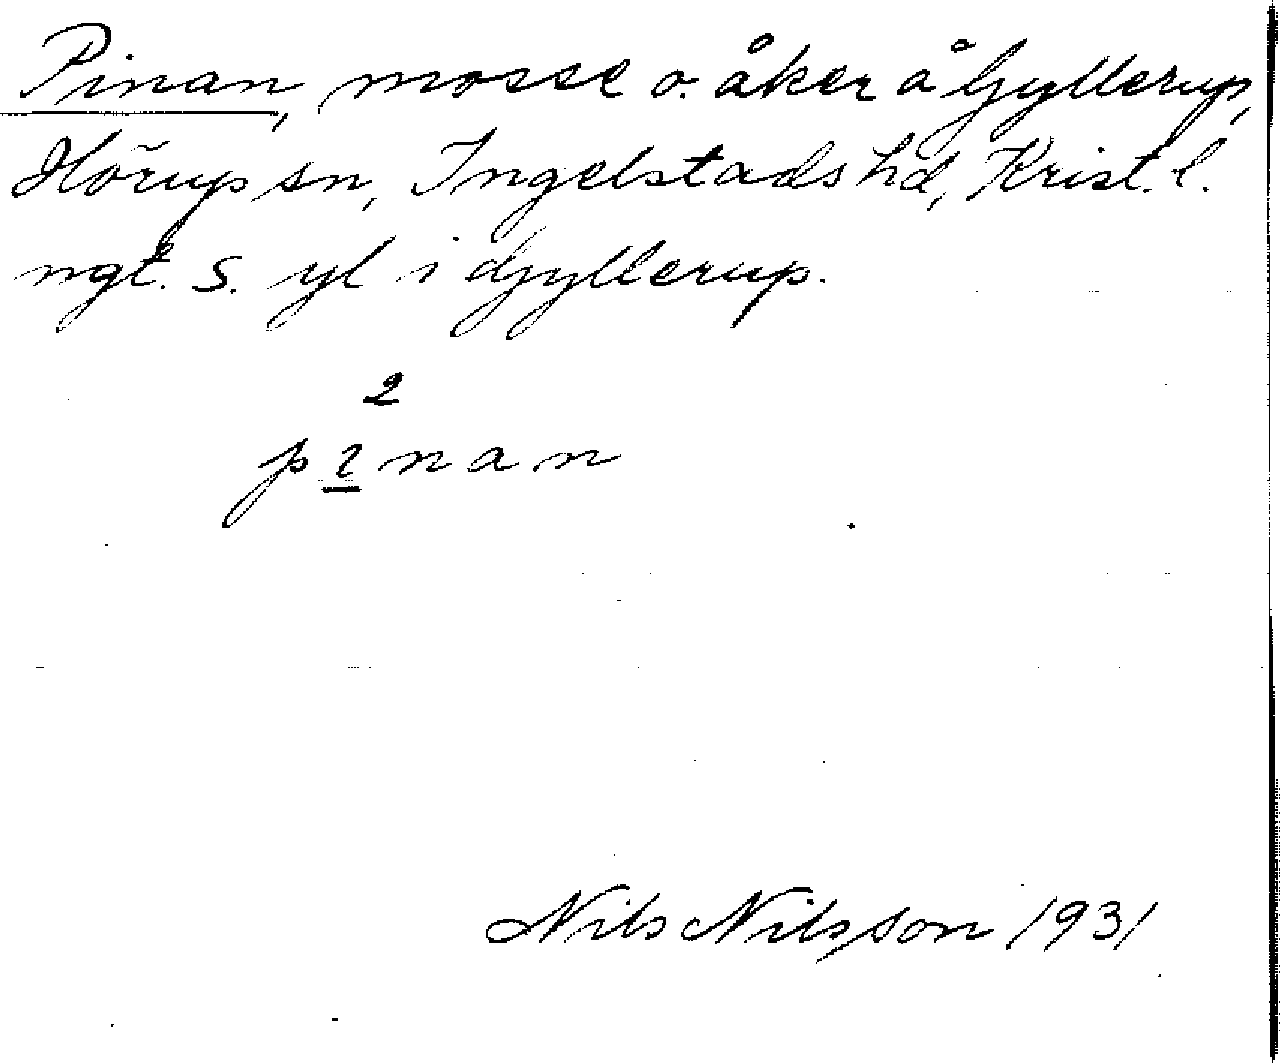 Pinan, mosse o. åker å Gyllerup,
Hörup sn, Ingelstads hd, Krist. l.
ngt. S. yl i Gyllerup.
2
pı̱nan
Nils Nilsson 1931